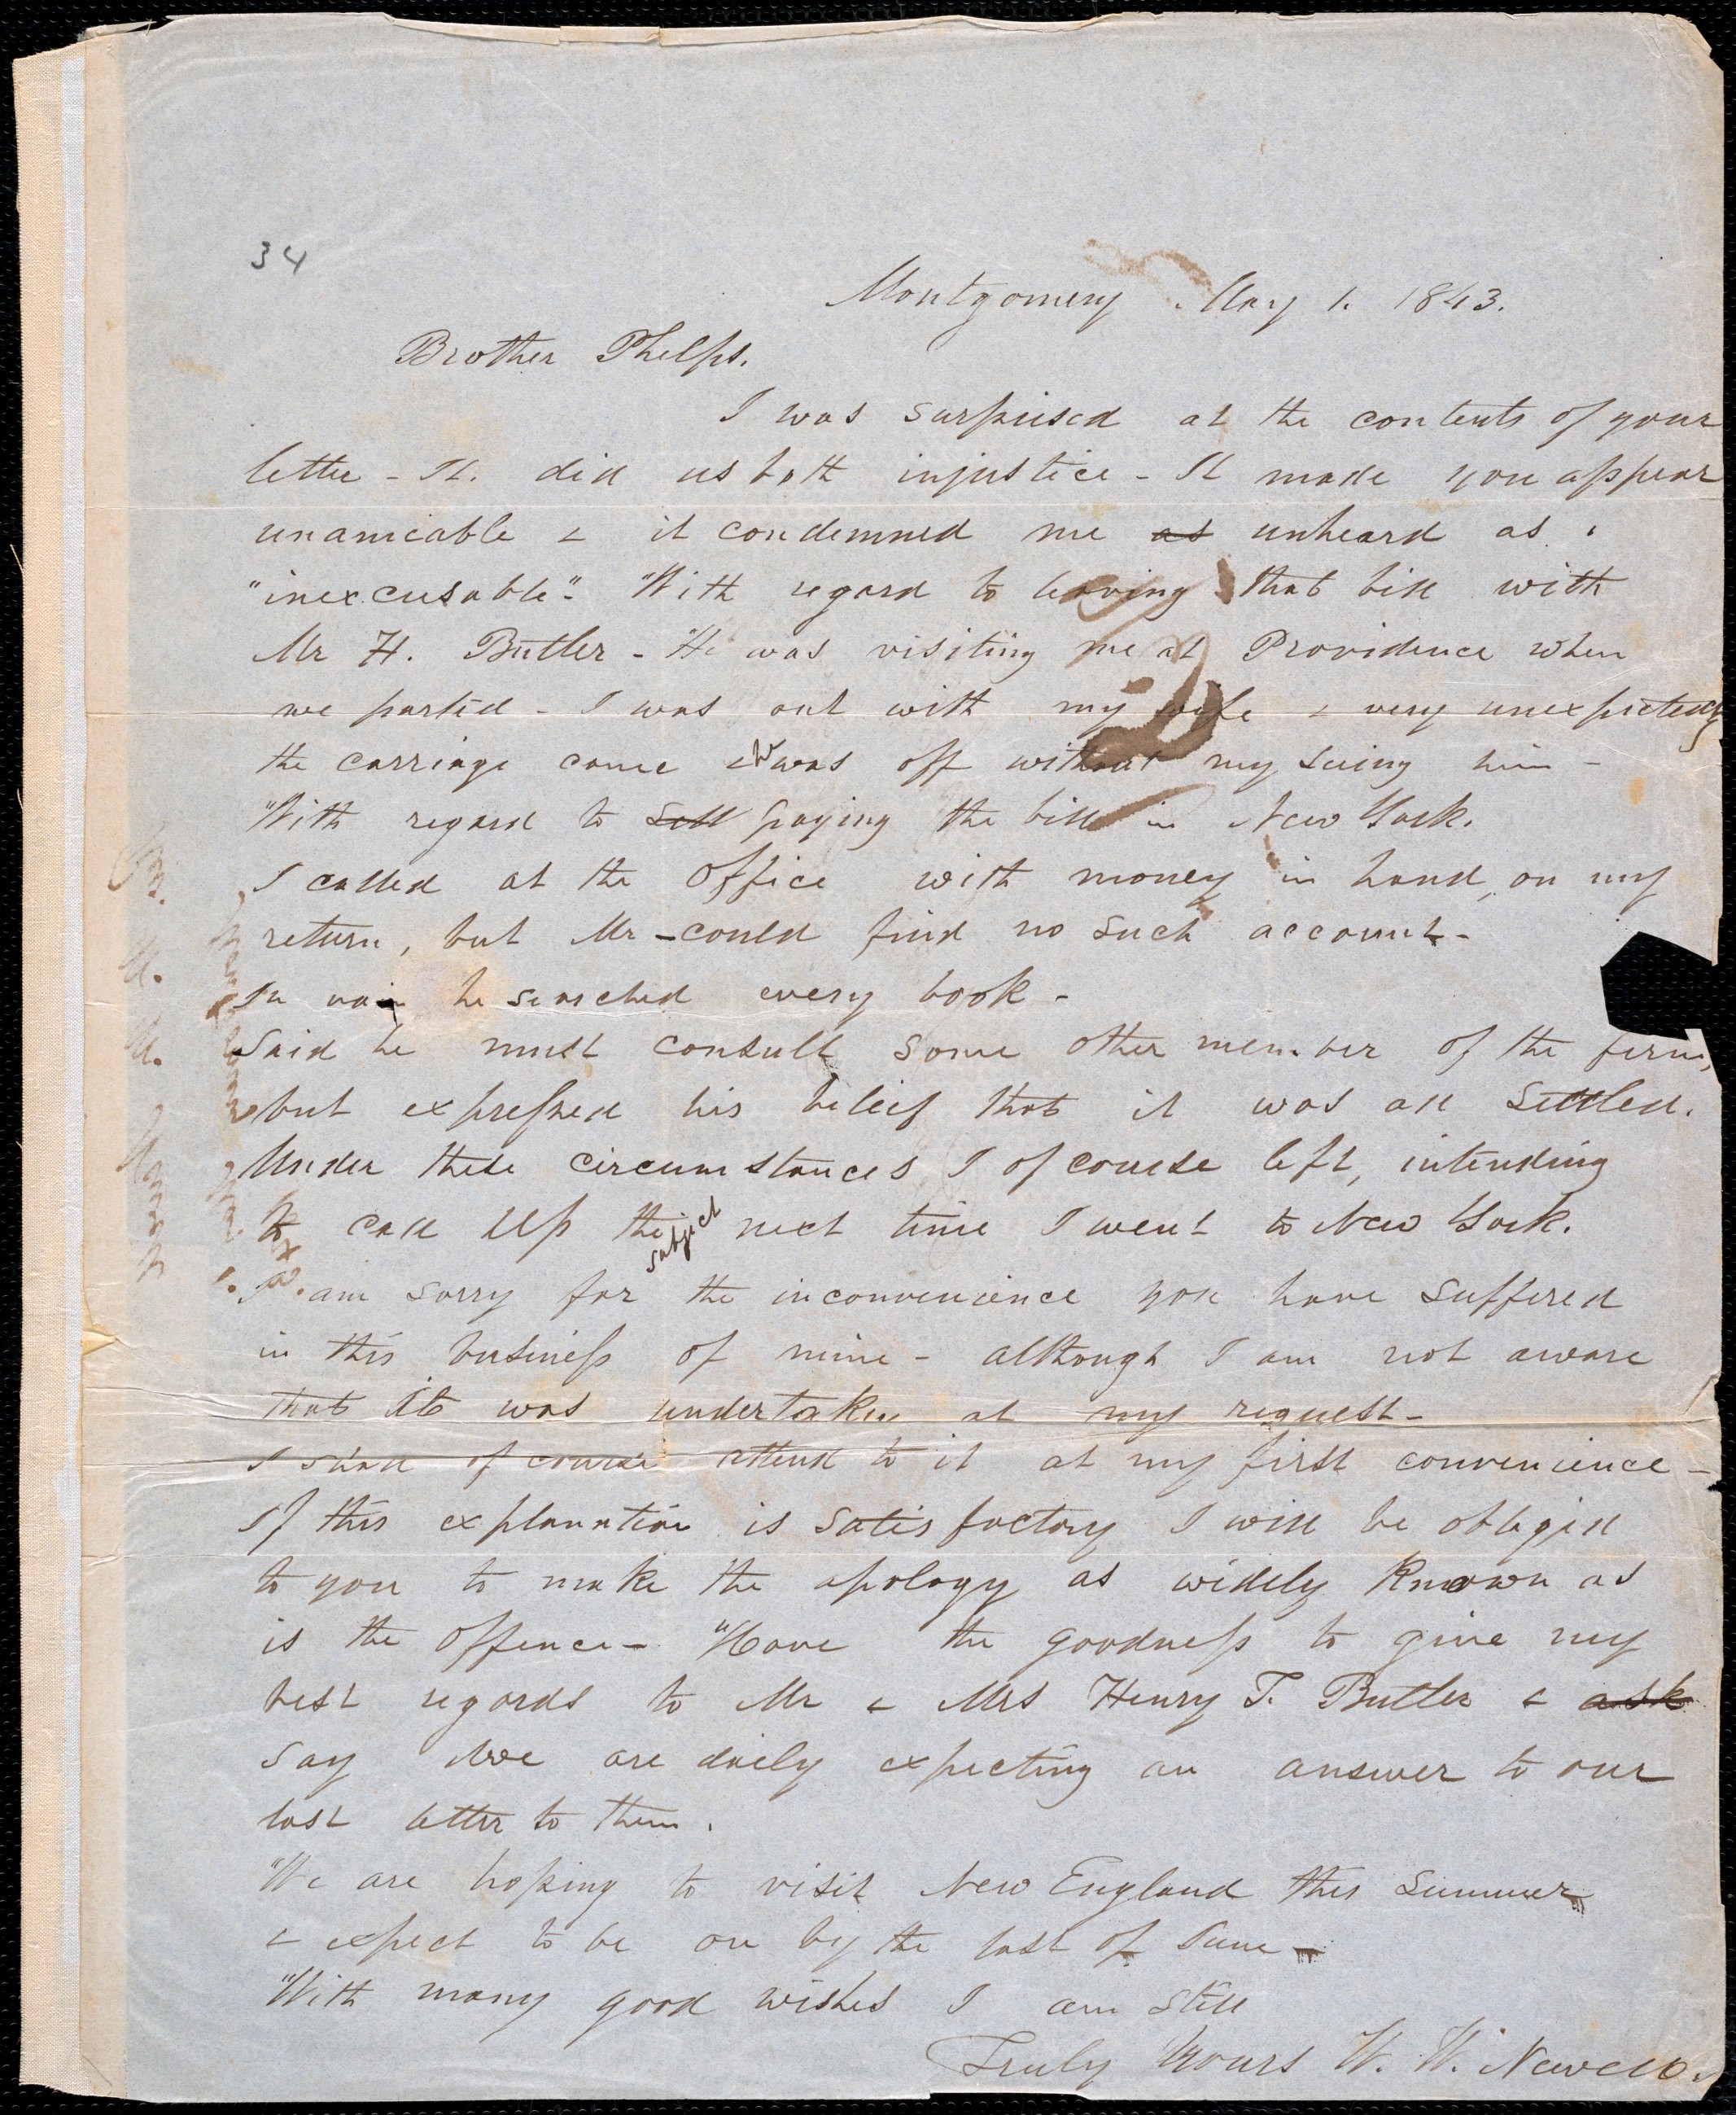 34
Montgomery May 1. 1843.
Brother Phelps.
I was surprised at the contents of your
letter - It. did us both injustice - It made you appear
unamicable & it condemned me as unheard as
"inexcusable". With regard to leaving that bill with
Mr H. Butler - He was visiting me at Providence when
we parted - I was out with my wife & very unexpectedly
the carriage came & he was off without my seeing him -
With regard to sell paying the bill in New York.
I called at the office with money in hand, on my
return, but Mr - could find no such account -
In vain he searched every book -
Said he must consult some other member of the firm,
but expressed his beleif that it was all settled.
Under these circumstances I of course left, intending
to call up the subject next time I went to New York.
I am sorry for the inconvenience you have suffered
in this business of mine - although I am not aware
that it was undertaken at my request -
I shall of course attend to it at my first convenience -
If this explanation is satisfactory I will be obliged
to you to make the apology as widely known as
is the offence - Have the goodness to give my
best regards to Mr & Mrs Henry T. Butler & ask
say we are daily expecting an answer to our
last letter to them.
We are hoping to visit New England this summer
& expect to be on by the last of June -
With many good wishes I am still
Truly Yours W. W. Newell.